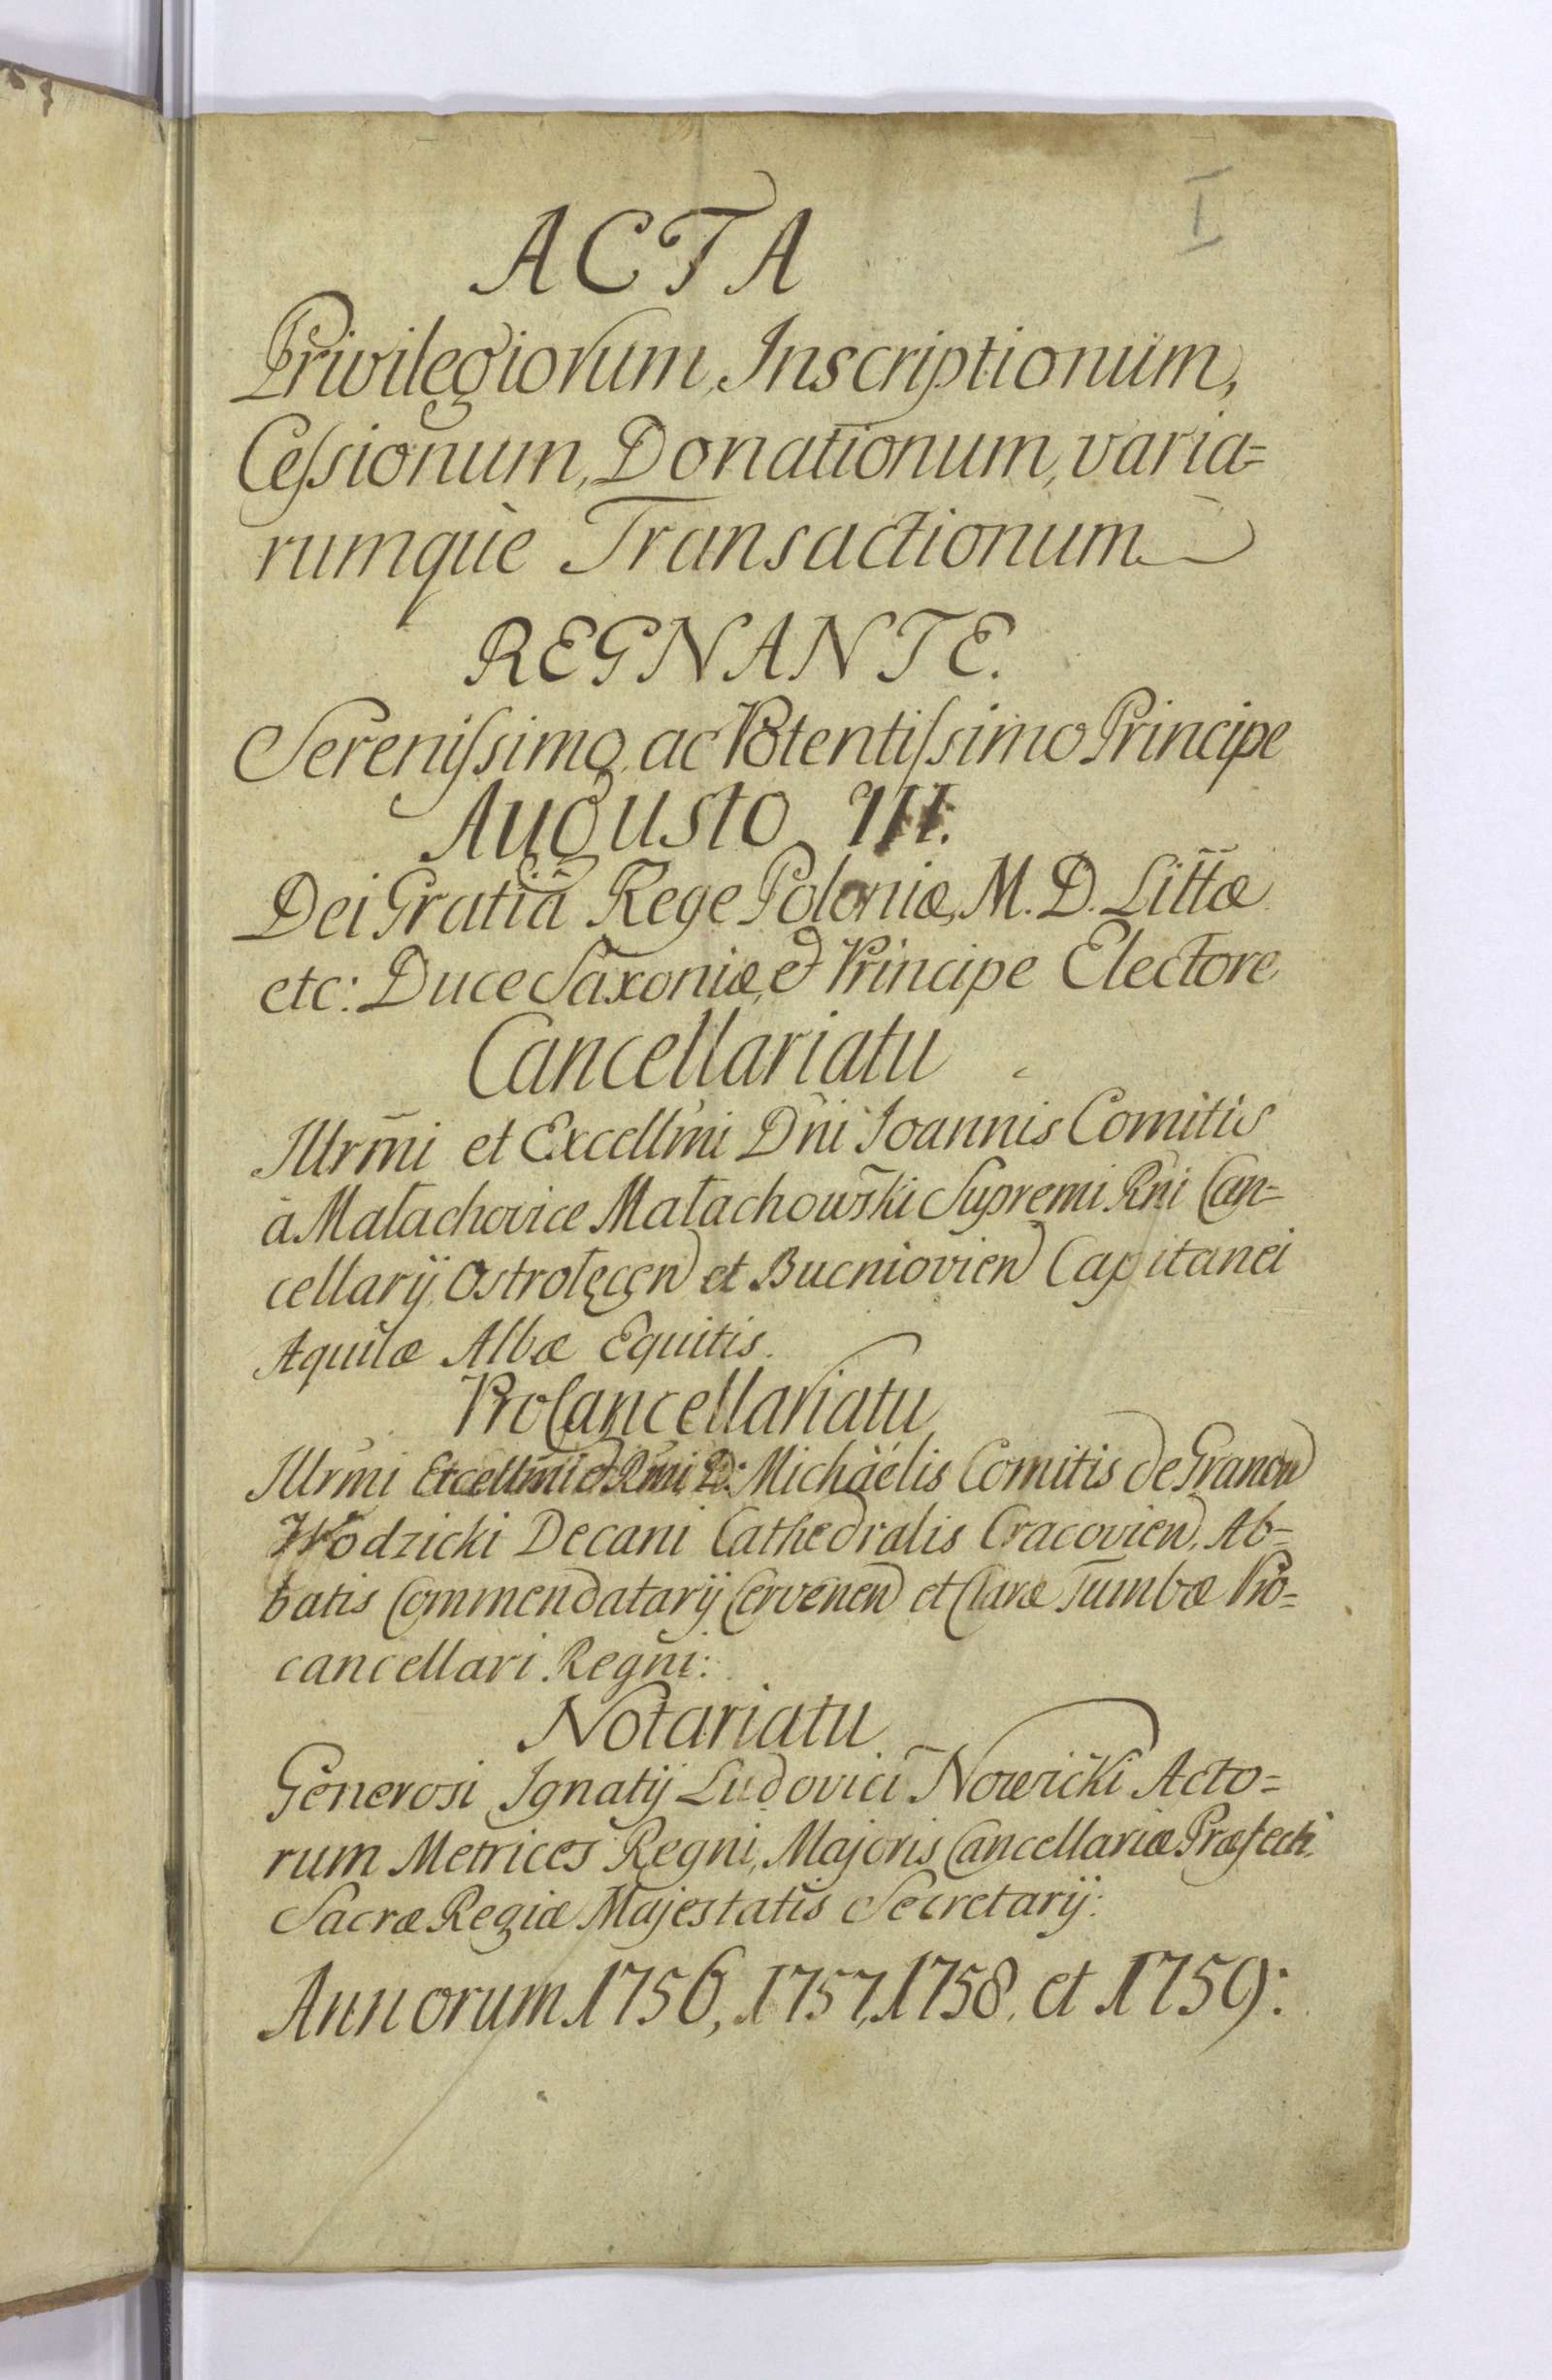 I
ACTA
Privilegiorum, Inscriptionum,
Cessionum, Donationum, varia=
rumque Transactionum
REGNANTE.
Serenissimo, ac Potentissimo Principe
Augusto III.
Dei Gratiâ Rege Poloniæ, M. D. Littæ
etc: Duce Saxoniæ, et Principe Electore
Cancellariatu
Illrmi et Excellmi Dni Ioannis Comitis
à Małachovice Małachowski Supremi Rni Can=
cellarij, Ostrołęcen et Bucniovien Capitanei
Aquilæ Albæ Equitis.
ProCancellariatu
Illrmi Excellmi et Rmi D: Michaëlis Comitis de Granow
Wodzicki Decani Cathedralis Cracovien, Ab=
batis Commendatarij Cervenen et Claræ Tumbæ Pro=
cancellari Regni:
Notariatu
Generosi Ignatij Ludovici Nowicki Acto=
rum Metrices Regni, Majoris Cancellariæ Præfecti,
Sacræ Regiæ Majestatis Secretarij:
Annorum 1756, 1757, 1758, et 1759: